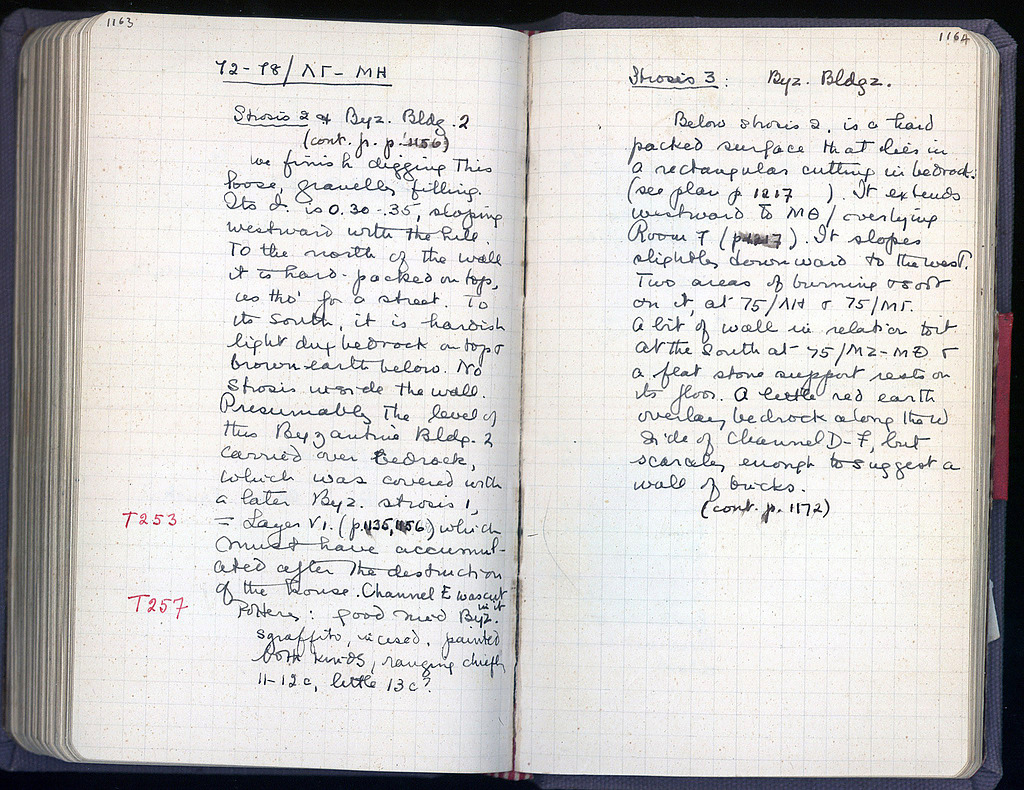 1163
72-78/ΛΓ-ΜΗ
Strosis 2 of Byz. Bldg. 2
(cont. fr. p. 1156)
We finish digging this
loose, gravelly filling.
Its d. is 0.30-.35, sloping
westward with the hill.
To the north of the wall
it is hard-packed on top,
as tho' for a street. To
its south, it is hardish
light dug bedrock on top &
brown earth below. No
Strosis inside the wall.
Presumably the level of
this Byzantine Bldg. 2
carried over bedrock,
which was covered with
a later Byz. strosis 1,
T253
= Layer VI. (p. 1135, 1156) which
must have accumul-
ated after the destruction
of the house. Channel E was cut
in it
T257
Pottery: good med Byz.
sgraffito, incised, painted
both kinds, ranging chiefly
11-12 c, little 13 c?
1164
Strosis 3: Byz. Bldg 2.
Below strosis 2, is a hard
packed surface that lies in
a rectangular cutting in bedrock.
(see plan p. 1217 ). It extends
westward to ΜΘ/ overlying
Room 7 (p. 1217). It slopes
slightly downward to the west.
Two areas of burning & soot
on it, at 75/ΛΗ & 75/ΜΓ.
A bit of wall in relation to it
at the South at 75/ΜΖ-ΜΘ &
a flat stone support rests on
its floor. A little red earth
overlay bedrock along the W
side of Channel D-F, but
scarcely enough to suggest a
wall of bricks.
(cont. p. 1172)